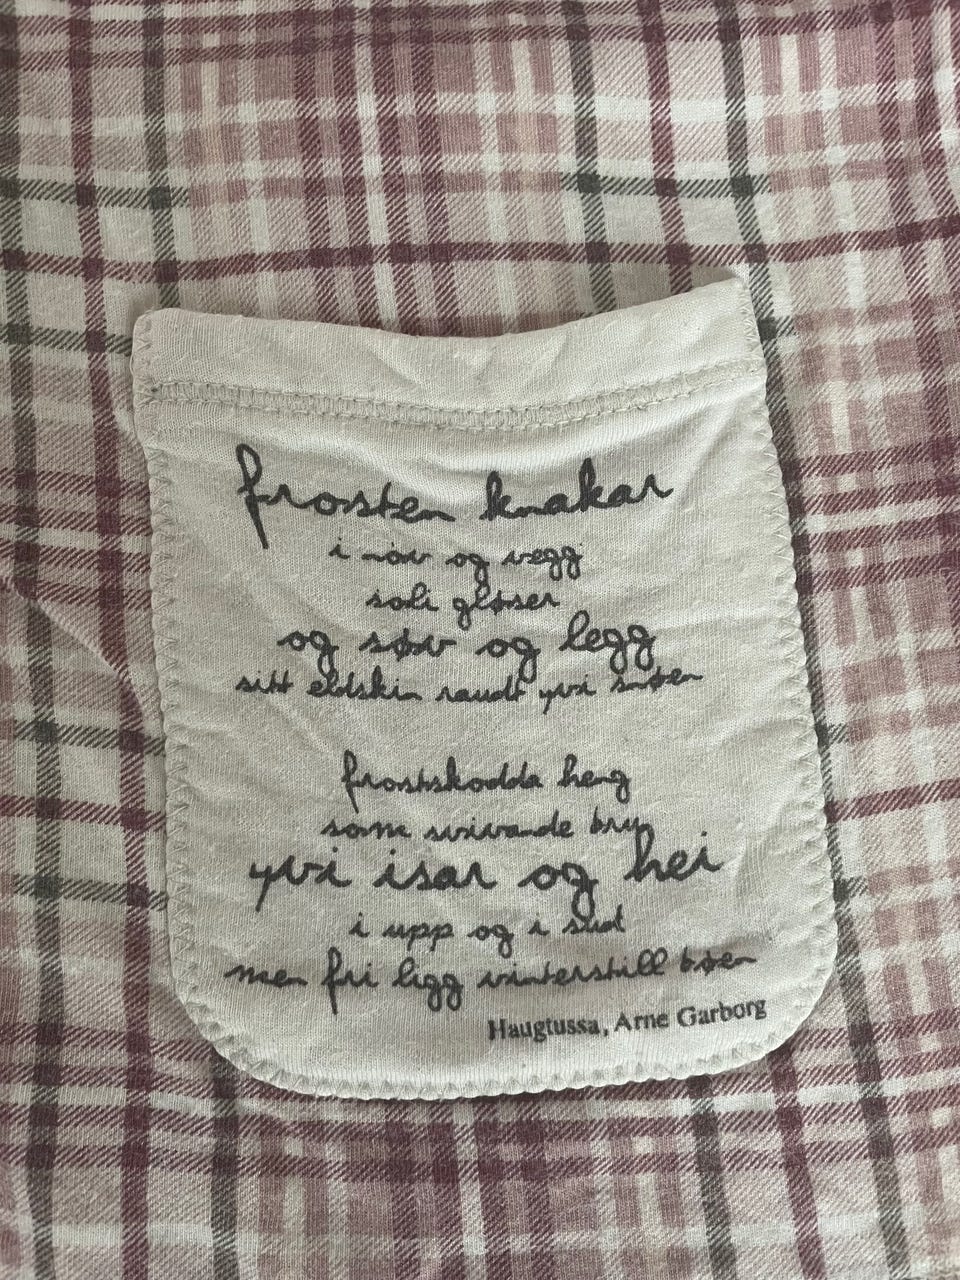 frosten knakar
i nov og vegg
soli gløser
og søv og legg
sitt eldskin raudt yvi snøen
frostskodda heng
som svivande bry
yvi isar og hei
i upp og i sud
men fri ligg vinterstill bøen
Haugtussa, Arne Garborg